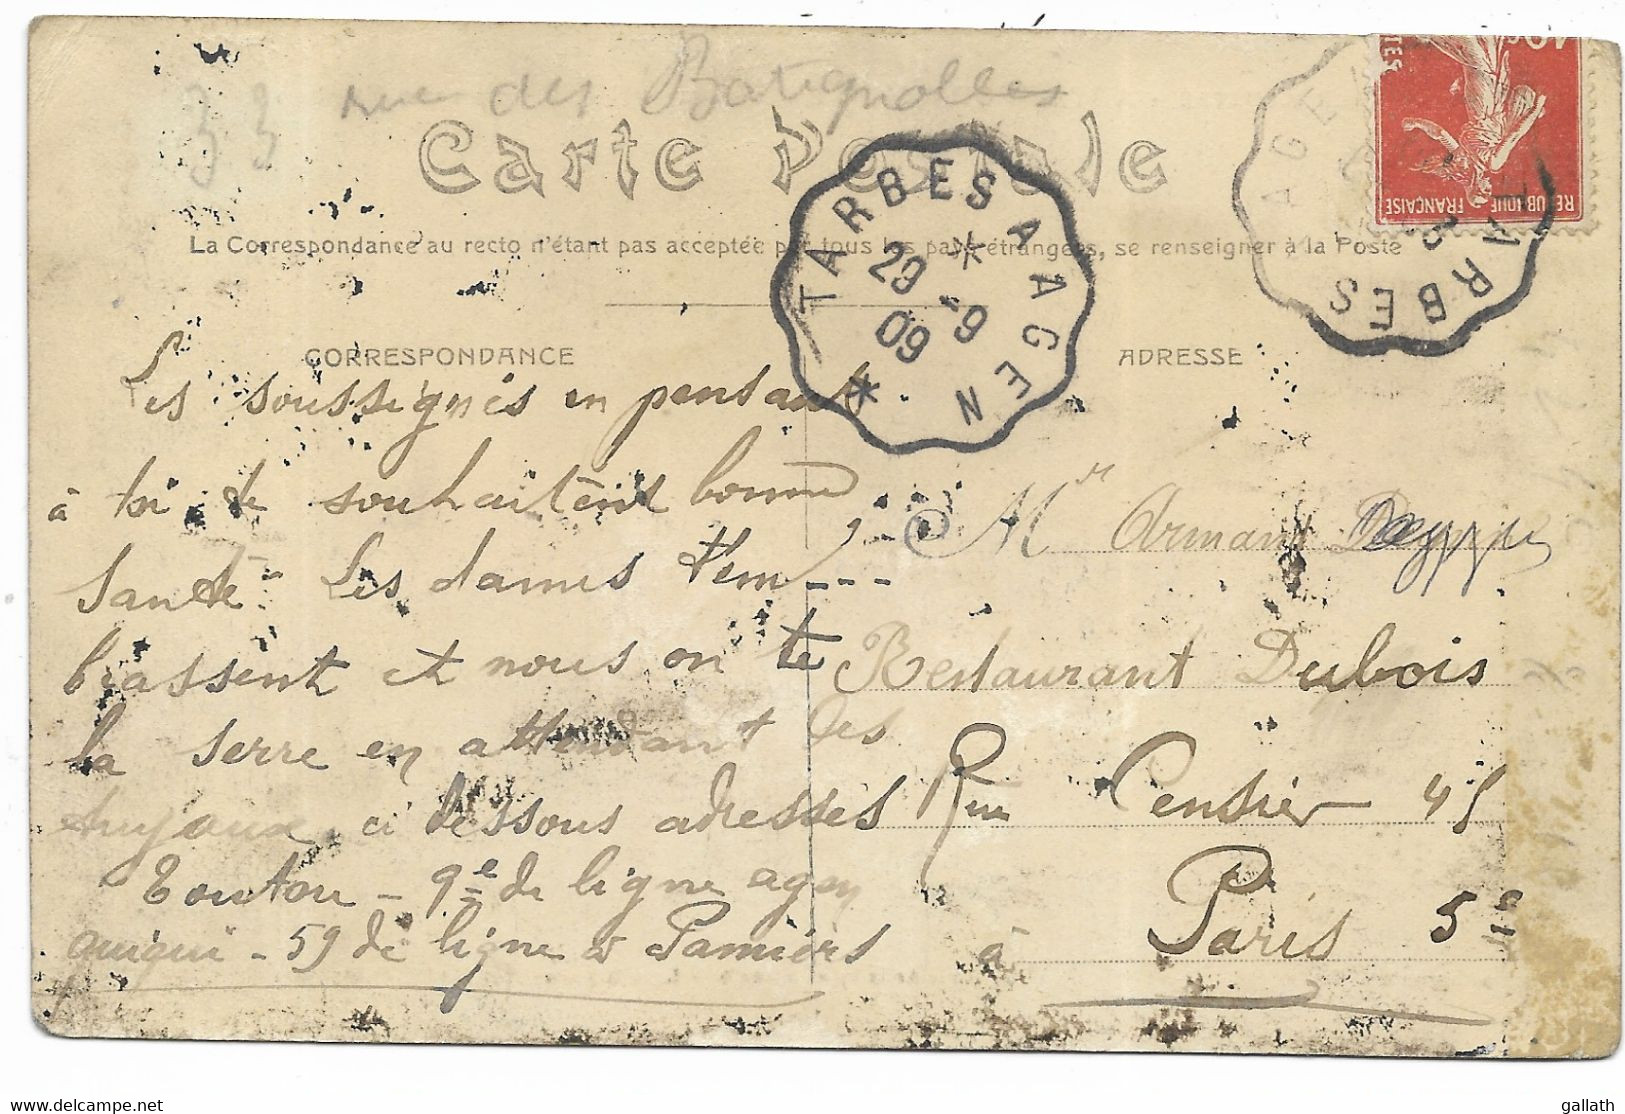 33 rue des Batignolles
Carte Postale
La Correspondance au recto n'étant pas acceptée par tous les pays étrangers, se renseigner à la Poste
TARBES A AGEN
29 -9
09
AGEN
TARBES
10c
POSTES
REPUBLIQUE FRANÇAISE
CORRESPONDANCE
ADRESSE
Les soussignés en pensant
à toi te souhaitent bonne
Santé Les dames t'em---
brassent et nous on te
la serre en attendant des
tuyaux ci dessous adresses
Toutou - 9e de ligne agen
quiqui - 59 de ligne à Pamiers
Mr Armand
Restaurant Dubois
Rue Censier 45
à Paris 5e
gallath